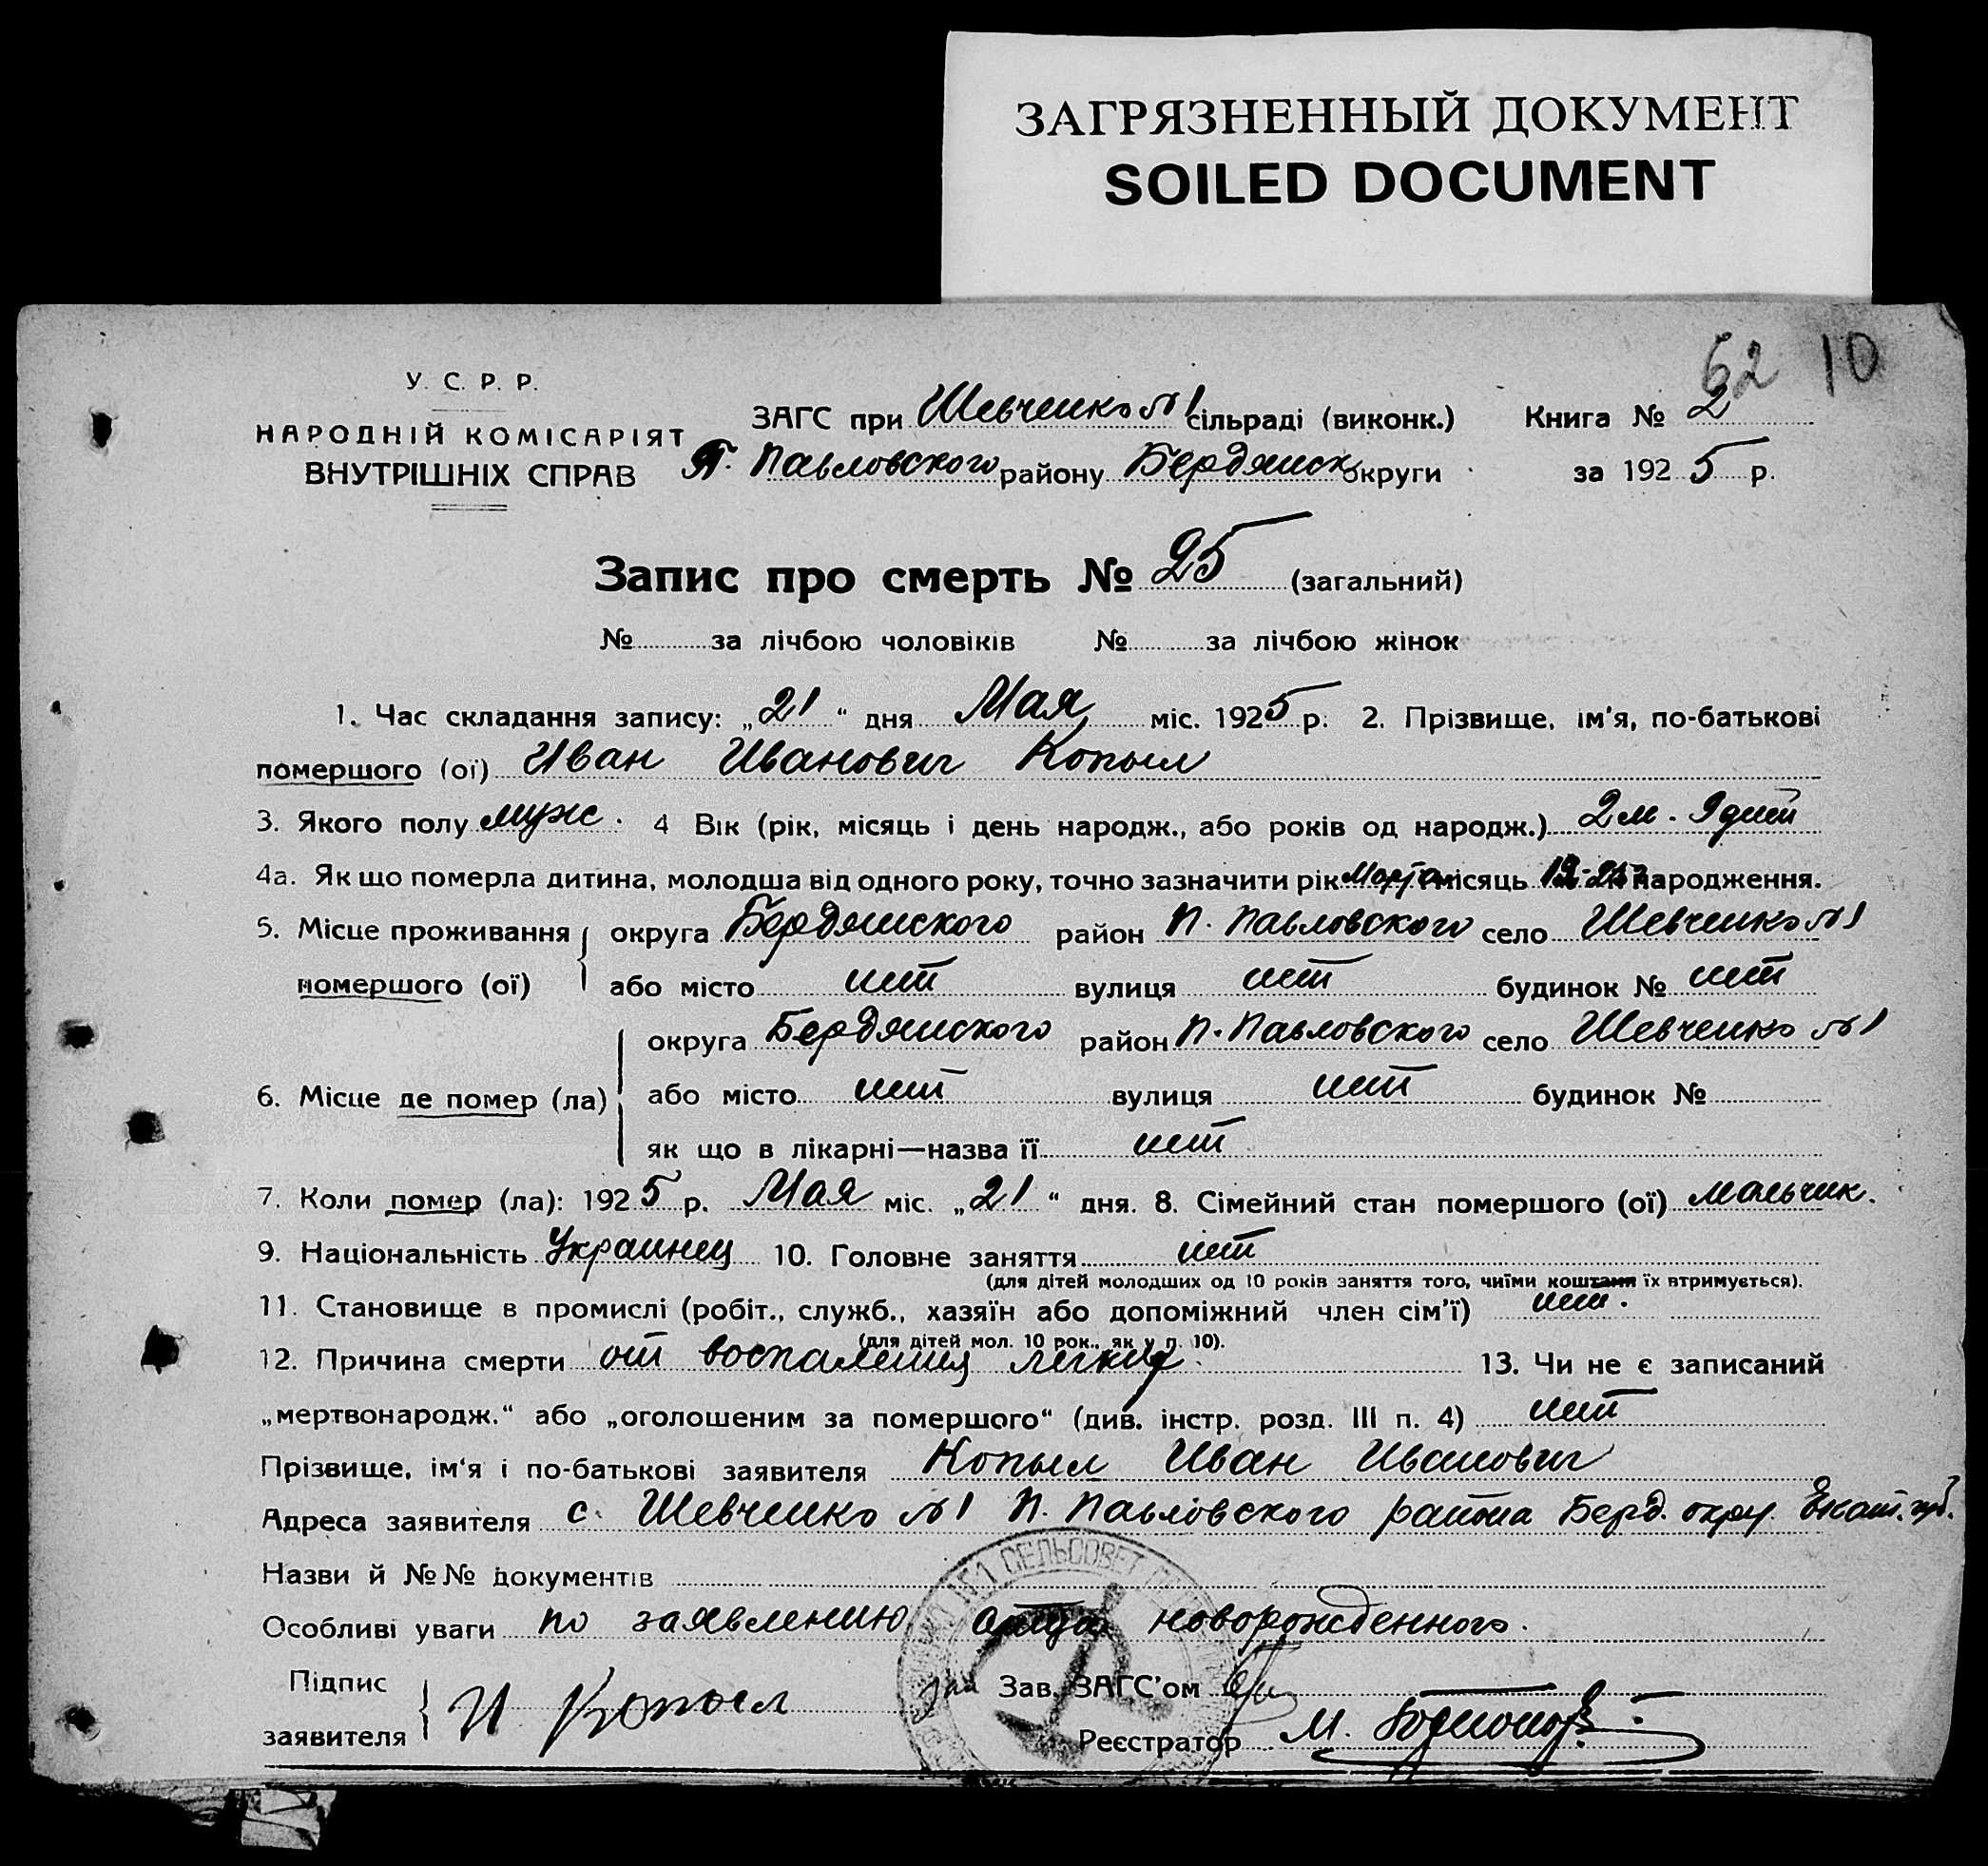 ЗАГРЯЗНЕННЫЙ ДОКУМЕНТ
SOILED DOCUMENT
62 10
У. С. Р. Р.
НАРОДНІЙ КОМІСАРІЯТ
ВНУТРІШНІХ СПРАВ
ЗАГС при Шевченко №1 сільраді (виконк.) Книга № 2
П. Павловского району Бердянск округи за 1925 р.
Запис про смерть № 25 (загальний)
№ за лічбою чоловіків № за лічбою жінок
1. Час складання запису: „21“ дня Мая міс. 1925 р. 2. Прізвище, ім'я, по-батькові
помершого (ої) Иван Иванович Копыл
3. Якого полу муж. 4 Вік (рік, місяць і день народж., або років од народж.) 2 м. 9 дней
4а. Як що померла дитина, молодша від одного року, точно зазначити рік Марта місяць народження.
5. Місце проживання округа Бердянского район П. Павловского село Шевченко №1
помершого (ої) або місто нет вулиця нет будинок № нет
округа Бердянского район П. Павловского село Шевченко №1
6. Місце де помер (ла) або місто нет вулиця нет будинок №
як що в лікарні—назва її нет
7. Коли помер (ла): 1925 р. Мая міс. „21“ дня. 8. Сімейний стан помершого (ої) мальчик.
9. Національність Украинец 10. Головне заняття нет
(для дітей молодших од 10 років заняття того, чиїми коштами їх втримується).
11. Становище в промислі (робіт., служб., хазяїн або допоміжний член сім'ї) нет.
(для дітей мол. 10 рок., як у п. 10).
12. Причина смерти от воспаления легких. 13. Чи не є записаний
„мертвонародж.“ або „оголошеним за помершого“ (див. інстр. розд. III п. 4) нет
Прізвище, ім'я і по-батькові заявителя Копыл Иван Иванович
Адреса заявителя с. Шевченко №1 П. Павловского района Берд. окру. Екат. губ.
Назви й №№ документів
Особливі уваги по заявлению отца новорожденного.
Підпис
заявителя И Копыл
Зав. ЗАГС'ом
Реєстратор М.
№1 СЕЛЬСОВЕТ